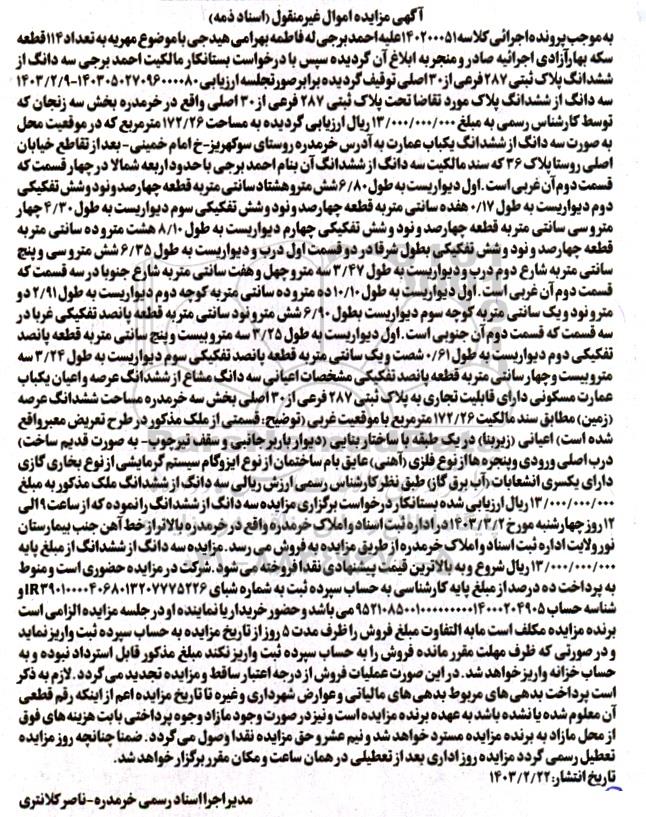 آگهی مزایده اموال غیرمنقول (اسناد ذمه)
به موجب پرونده اجرائی کلاسه ۱۴۰۲۰۰۰۵۱ علیه احمد برجی له فاطمه بهرامی هیدجی با موضوع مهریه به تعداد ۱۱۴ قطعه
سکه بهار آزادی اجرائیه صادر و منجر به ابلاغ آن گردیده سپس با درخواست بستانکار مالکیت احمد برجی سه دانگ از
ششدانگ پلاک ثبتی ۲۸۷ فرعی از ۳۰ اصلی توقیف گردیده برابر صورتجلسه ارزیابی ۱۴۰۳۰۵۰۲۷۰۹۶۰۰۰۰۸۰-۱۴۰۳/۲/۹
سه دانگ از ششدانگ پلاک مورد تقاضا تحت پلاک ثبتی ۲۸۷ فرعی از ۳۰ اصلی واقع در خرمدره بخش سه زنجان که
توسط کارشناس رسمی به مبلغ ۱۳/۰۰۰/۰۰۰/۰۰۰ ریال ارزیابی گردیده به مساحت ۱۷۲/۲۶ مترمربع که در موقعیت محل
به صورت سه دانگ از ششدانگ یکباب عمارت به آدرس خرمدره روستای سوکهریز-خ امام خمینی- بعد از تقاطع خیابان
اصلی روستا پلاک ۳۶ که سند مالکیت سه دانگ از ششدانگ آن بنام احمد برجی با حدود اربعه شمالا در چهار قسمت که
قسمت دوم آن غربی است. اول دیواریست به طول ۶/۸۰ شش متر و هشتاد سانتی متر به قطعه چهارصد و نود و شش تفکیکی
دوم دیواریست به طول ۰/۱۷ هفده سانتی متر به قطعه چهارصد و نود و شش تفکیکی سوم دیواریست به طول ۴/۳۰ چهار
متر و سی سانتی متر به قطعه چهارصد و نود و شش تفکیکی چهارم دیواریست به طول ۸/۱۰ هشت متر و ده سانتی متر به
قطعه چهارصد و نود و شش تفکیکی بطول شرقا در دو قسمت اول درب و دیواریست به طول ۶/۳۵ شش متر و سی و پنج
سانتی متر به شارع دوم درب و دیواریست به طول ۳/۴۷ سه متر و چهل و هفت سانتی متر به شارع جنوبا در سه قسمت که
قسمت دوم آن غربی است. اول دیواریست به طول ۱۰/۱۰ ده متر و ده سانتی متر به کوچه دوم دیواریست به طول ۲/۹۱ دو
متر و نود و یک سانتی متر به کوچه سوم دیواریست بطول ۶/۹۰ شش متر و نود سانتی متر به قطعه پانصد تفکیکی غربا در
سه قسمت که قسمت دوم آن جنوبی است. اول دیواریست به طول ۳/۲۵ سه متر و بیست و پنج سانتی متر به قطعه پانصد
تفکیکی دوم دیواریست به طول ۰/۶۱ شصت و یک سانتی متر به قطعه پانصد تفکیکی سوم دیواریست به طول ۳/۲۴ سه
متر و بیست و چهار سانتی متر به قطعه پانصد تفکیکی مشخصات اعیانی سه دانگ مشاع از ششدانگ عرصه و اعیان یکباب
عمارت مسکونی دارای قابلیت تجاری به پلاک ثبتی ۲۸۷ فرعی از ۳۰ اصلی بخش سه خرمدره مساحت ششدانگ عرصه
(زمین) مطابق سند مالکیت ۱۷۲/۲۶ مترمربع با موقعیت غربی (توضیح: قسمتی از ملک مذکور در طرح تعریض معبر واقع
شده است) اعیانی (زیربنا) در یک طبقه با ساختار بنایی (دیوار باربر جانبی و سقف تیرچوب- به صورت قدیم ساخت)
درب اصلی ورودی و پنجره ها از نوع فلزی (آهنی) عایق بام ساختمان از نوع ایزوگام سیستم گرمایشی از نوع بخاری گازی
دارای یکسری انشعابات (آب برق گاز) طبق نظر کارشناس رسمی ارزش ریالی سه دانگ از ششدانگ ملک مذکور به مبلغ
۱۳/۰۰۰/۰۰۰/۰۰۰ ریال ارزیابی شده بستانکار درخواست برگزاری مزایده سه دانگ از ششدانگ را نموده که از ساعت ۹ الی
۱۲ روز چهارشنبه مورخ ۱۴۰۳/۳/۲ در اداره ثبت اسناد و املاک خرمدره واقع در خرمدره بالاتر از خط آهن جنب بیمارستان
نور ولایت اداره ثبت اسناد و املاک خرمدره از طریق مزایده به فروش می رسد. مزایده سه دانگ از ششدانگ از مبلغ پایه
۱۳/۰۰۰/۰۰۰/۰۰۰ ریال شروع و به بالاترین قیمت پیشنهادی نقدا فروخته می شود. شرکت در مزایده حضوری است و منوط
به پرداخت ده درصد از مبلغ پایه کارشناسی به حساب سپرده ثبت به شماره شبای IR۳۹۰۱۰۰۰۰۴۰۶۸۰۱۳۲۰۷۷۷۵۲۲۶ و
شناسه حساب ۹۵۲۱۰۸۵۰۰۱۰۰۰۰۰۰۰۰۱۴۰۰۰۲۰۴۹۰۵ می باشد و حضور خریدار یا نماینده او در جلسه مزایده الزامی است
برنده مزایده مکلف است مابه التفاوت مبلغ فروش را ظرف مدت ۵ روز از تاریخ مزایده به حساب سپرده ثبت واریز نماید
و در صورتی که ظرف مهلت مقرر مانده فروش را به حساب سپرده ثبت واریز نکند مبلغ مذکور قابل استرداد نبوده و به
حساب خزانه واریز خواهد شد. در این صورت عملیات فروش از درجه اعتبار ساقط و مزایده تجدید می گردد. لازم به ذکر
است پرداخت بدهی های مربوط بدهی های مالیاتی و عوارض شهرداری و غیره تا تاریخ مزایده اعم از اینکه رقم قطعی
آن معلوم شده یا نشده باشد به عهده برنده مزایده است و نیز در صورت وجود مازاد وجوه پرداختی بابت هزینه های فوق
از محل مازاد به برنده مزایده مسترد خواهد شد و نیم عشر و حق مزایده نقدا وصول می گردد. ضمنا چنانچه روز مزایده
تعطیل رسمی گردد مزایده روز اداری بعد از تعطیلی در همان ساعت و مکان مقرر برگزار خواهد شد.
تاریخ انتشار: ۱۴۰۳/۲/۲۲
مدیر اجرا اسناد رسمی خرمدره-ناصر کلانتری